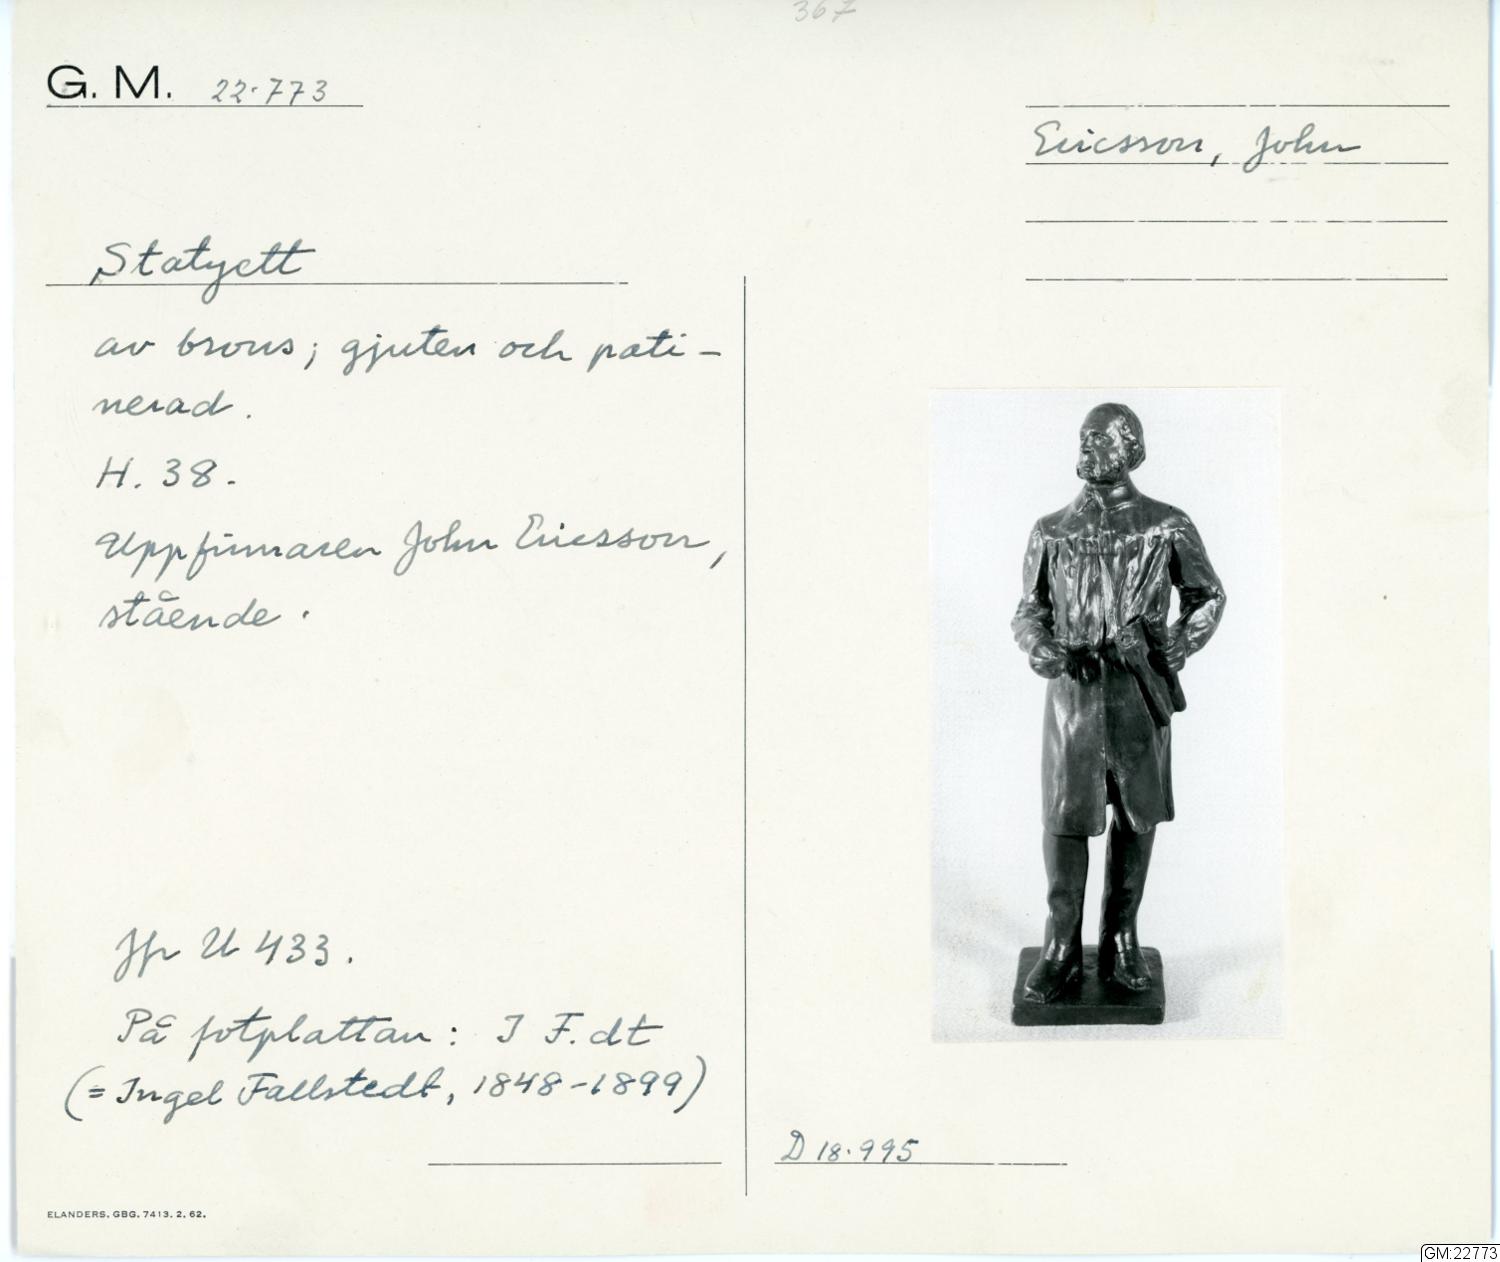 367
G. M. 22.773
Ericsson, John
Statyett
av brons; gjuten och pati-
nerad.
H. 38.
Uppfinnaren John Ericsson,
stående.
Jfr U 433.
På fotplattan: I F.dt
(= Ingel Fallstedt, 1848-1899)
D 18.995
ELANDERS. GBG. 7413. 2. 62.
GM:22773